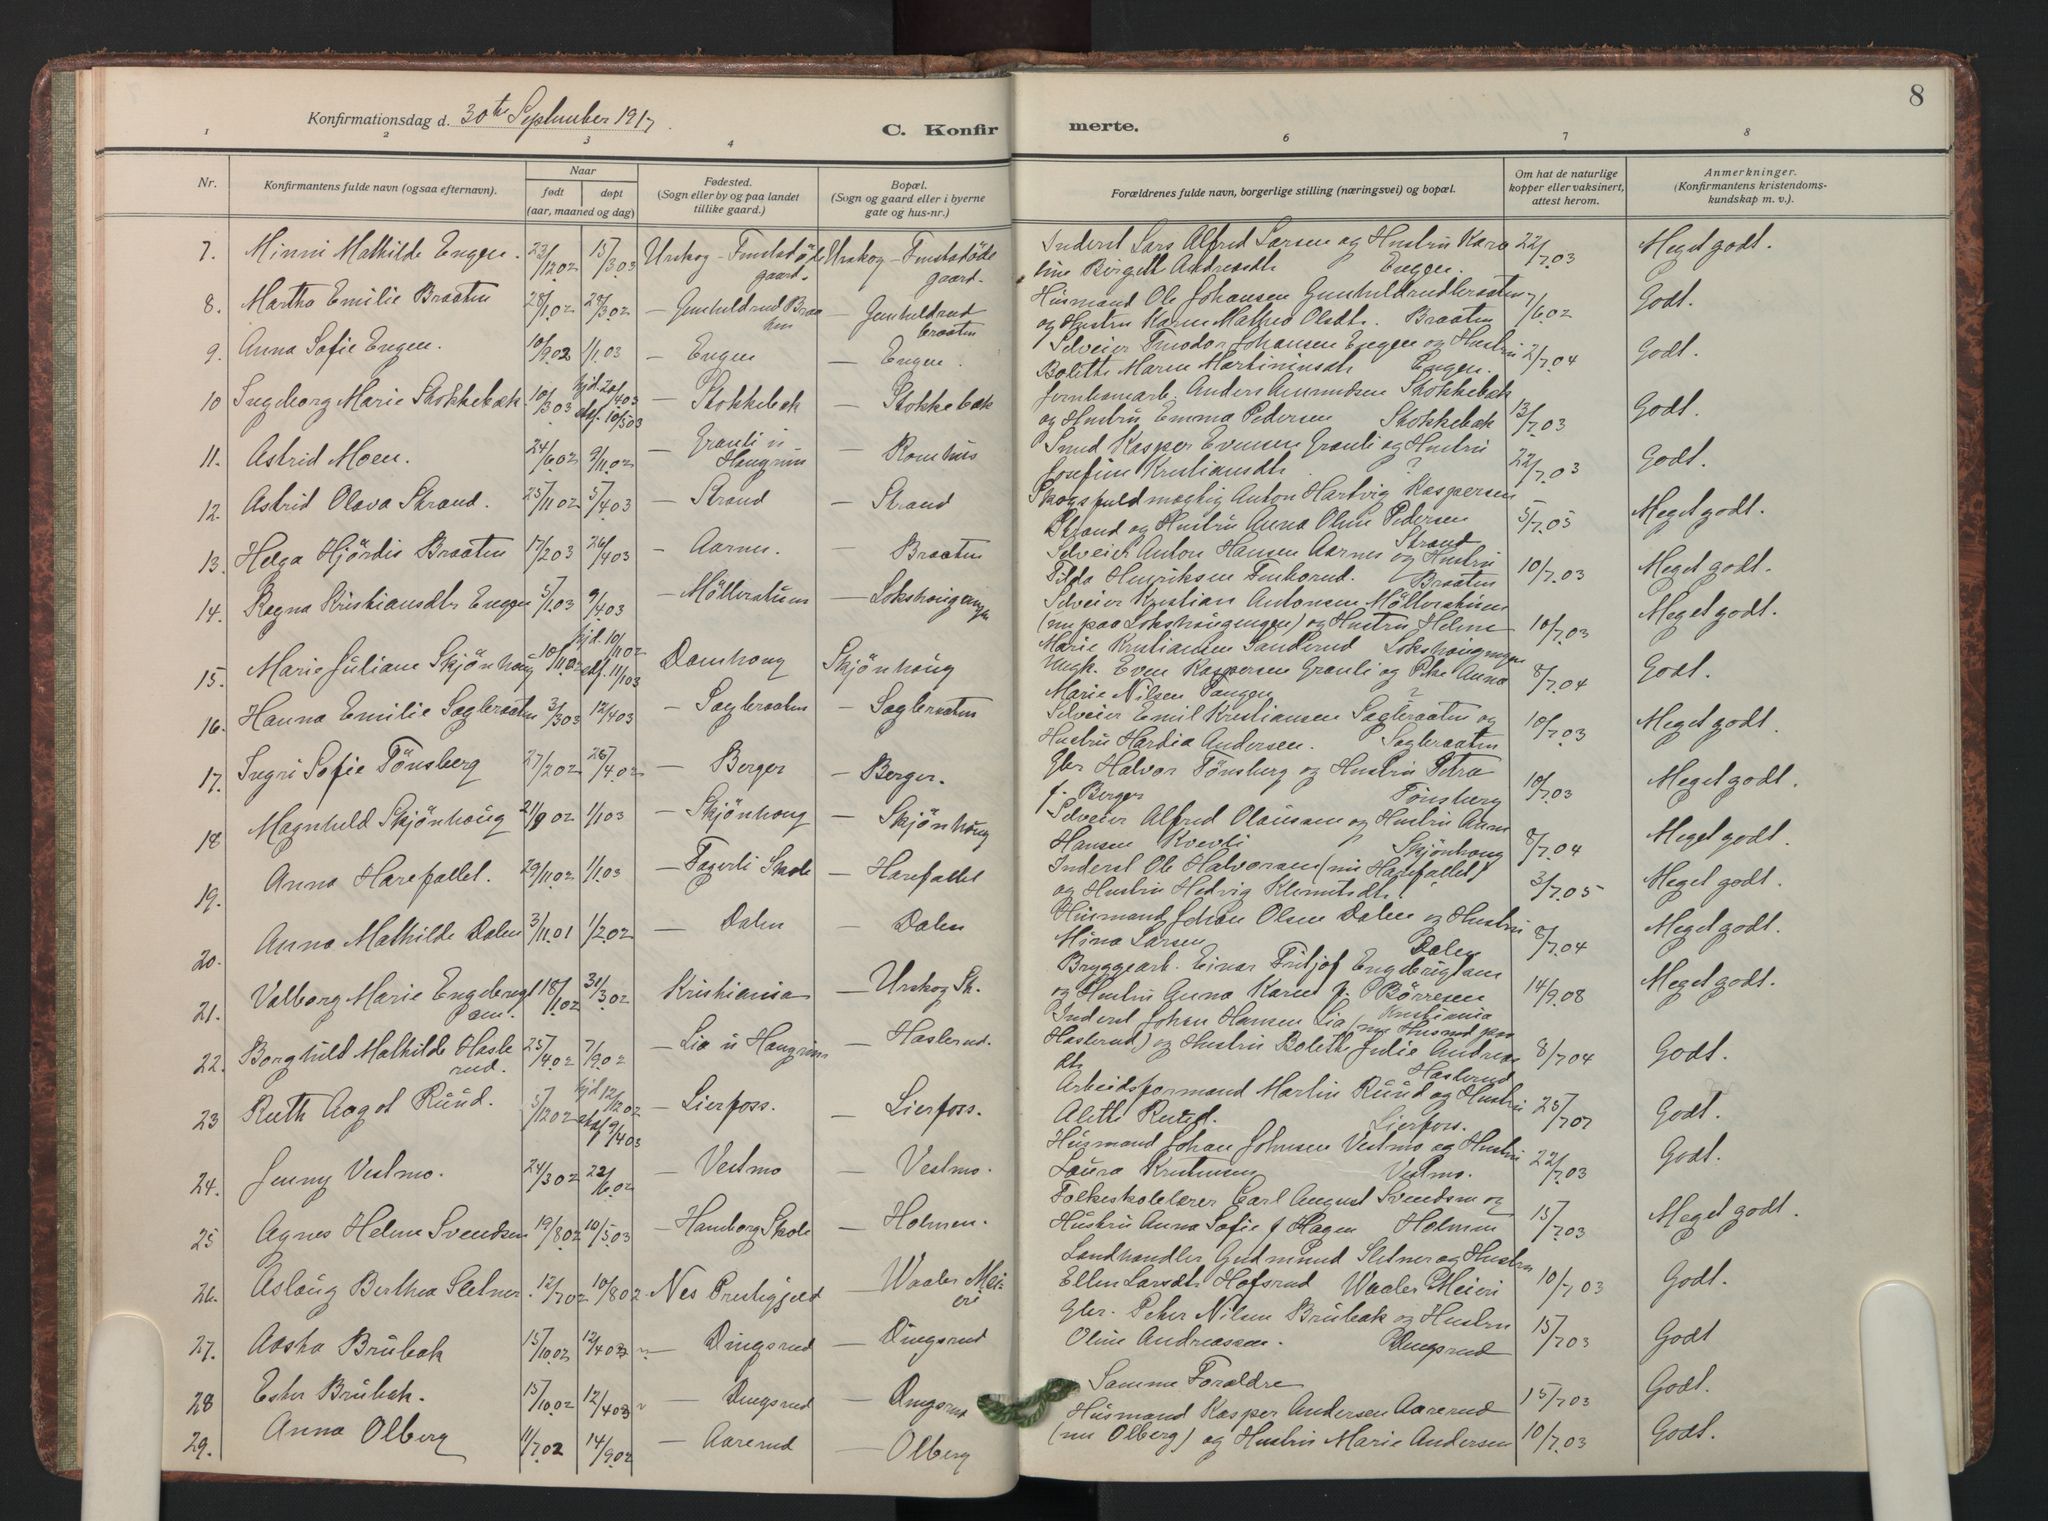 8
Konfirmationsdag d. 30te September 1917.
C. Konfirmerte.
1 2 3 4 6 7 8
Nr. Konfirmantens fulde navn (ogsaa efternavn). Naar født døpt (aar, maaned og dag) Fødested. (Sogn eller by og paa landet tillike gaard.) Bopæl. (Sogn og gaard eller i byerne gate og hus-nr.) Forældrenes fulde navn, borgerlige stilling (næringsvei) og bopæl. Om hat de naturlige kopper eller vaksinert, attest herom. Anmerkninger. (Konfirmantens kristendomskundskap m. v.).
7. Minni Mathilde Engen. 23/12 02 15/3 03 Urskog - Finstadöde gaard. Urskog - Finstadöde gaard.
Inderst Lars Alfred Larsen og Hustru Karo 22/7 03 Meget godt.
line Birgitte Andreasdt. Engen.
8. Martha Emilie Braaten 28/1 02 28/3 02 — Gunhildrud Braaten — Gunhildrud braaten
Husmand Ole Johansen Gunhildrudbraaten 7/6 02 Godt.
og Hustru Karen Mathea Olsdt. Braaten
9. Anna Sofie Engen. 10/9 02 1/1 03 — Engen — Engen.
Selveier Theodor Johansen Engen og Hustru 2/7 04 Godt.
Bolette Maren Martininsdt. Engen.
10 Ingeborg Marie Stokkebæk 10/3 03 hjd. 20/4 03 stad. 10/5 03 — Stokkebæk — Stokkebæk
Jernbanearb. Anders Amundsen Stokkebæk 13/7 03 Godt.
og Hustru Emma Pedersen Stokkebæk
11. Astrid Moen. 24/6 02 9/11 02 — Granli u Haugrim — Romhus
Smed Kasper Evensen Granli og Hustru 22/7 03 Godt.
Josefine Kristiansdt. ?
12. Astrid Olava Strand. 25/11 02 5/4 03 — Strand — Strand
Skogsfuldmægtig Anton Hartvig Kaspersen 5/7 05 Meget godt.
Strand og Hustru Anna Oline Pedersen
Strand
13. Helga Hjördis Braaten 17/2 03 26/4 03 — Aarnes. — Braaten
Selveier Anton Hansen Aarnes og Hustru 10/7 03 Meget godt.
Tilda Henriksen Finborud. Braaten
14. Ragna Kristiansdt. Engen 5/1 03 9/4 03 — Möllerstuen — Lokshougengen
Selveier Kristian Antonsen Möllerstuen 10/7 03 Meget godt.
(nu paa Lokshougengen) og Hustru Helene
Marie Kristiansen Sanderud Lokshougengen
15. Marie Juliane Skjönhoug 10/11 02 hjd. 10/11 02 stad. 11/1 03 Damhoug Skjönhoug
Ungk. Even Kaspersen Granli og Pike Anna 8/7 04 Godt.
Marie Nilsen Tangen ?
16. Hanna Emilie Sagbraaten 3/3 03 12/4 03 — Sagbraaten — Sagbraaten
Selveier Emil Kristiansen Sagbraaten og 10/7 03 Meget godt.
Hustru Hardia Andersen. Sagbraaten
17. Ingri Sofie Tönsberg 27/2 02 26/4 02 — Berger — Berger.
Gbr Halvor Tönsberg og Hustru Petra 10/7 03 Meget godt.
f. Berger Tönsberg
18 Magnhild Skjönhoug 21/8 02 1/1 03 — Skjönhoug — Skjönhoug
Selveier Alfred Olaussen og Hustru Anne 8/7 04 Meget godt.
Hansen Kvevli Skjönhoug
19. Anna Harefallet. 29/11 02 1/1 03 — Fagerli Skole — Harefallet
Inderst Ole Halvorsen (nu Harefallet) 3/7 05 Meget godt.
og Hustru Hedvig Klemetsdt.
20. Anna Mathilde Dalen 3/11 01 1/2 02 — Dalen — Dalen
Husmand Johan Olsen Dalen og Hustru 8/7 04 Meget godt.
Mina Larsen Dalen
21. Valborg Marie Engebrigtsen. 18/1 02 31/3 02 Kristiania — Urskog Sk.
Bryggearb. Einar Fritjof Engebrigtsen 14/9 08 Meget godt.
og Hustru Anna Karen f. Börresen
Kristiania
22. Borghild Mathilde Haslerud. 25/4 02 7/9 02 — Lia u Haugrim — Haslerud.
Inderst Johan Hansen Lia (nu Husmd paa 8/7 04 Godt.
Haslerud) og Hustru Bolette Julie Andreas
dt. Haslerud
23 Ruth Aagot Rund. 5/12 02 hjd 12/12 02 stad 9/4 03 — Lierfoss. — Lierfoss.
Arbeidsformand Martin Rund og Hustru 25/7 07 Godt.
Alette Rund. Lierfoss.
24. Jenny Vestmo. 24/3 02 22/6 02 — Vestmo — Vestmo.
Husmand Johan Johnsen Vestmo og Hustru 22/7 03 Godt.
Laura Kristiansen Vestmo.
25 Agnes Helene Svendsen 19/8 02 10/5 03 — Hamborg Skole — Holmen.
Folkeskolelærer Carl August Svendsen og 15/7 03 Meget godt.
Hustru Anna Sofie f Hagen Holmen
26. Aslaug Berthea Sletner. 12/7 02 10/8 02 — Nes Prestegjeld Waaler Meieri
Landhandler Gudmund Sletner og Hustru 10/7 03 Godt.
Ellen Larsdt. Hofsrud Waaler Meieri
27. Aasta Brubak 15/10 02 12/4 03 — Dingsrud — Dingsrud
Gbr. Peter Nilsen Brubak og Hustru 15/7 03 Godt
Oline Andreassen. Dingsrud
28 Ester Brubak. 15/10 02 12/4 03 — Dingsrud — Dingsrud
Samme Forældre 15/7 03 Godt.
29. Anna Olberg 11/7 02 14/9 02 — Aarerud — Olberg
Husmand Kasper Andersen Aarerud
(nu Olberg) og Hustru Marie Andersen 10/7 03 Godt.